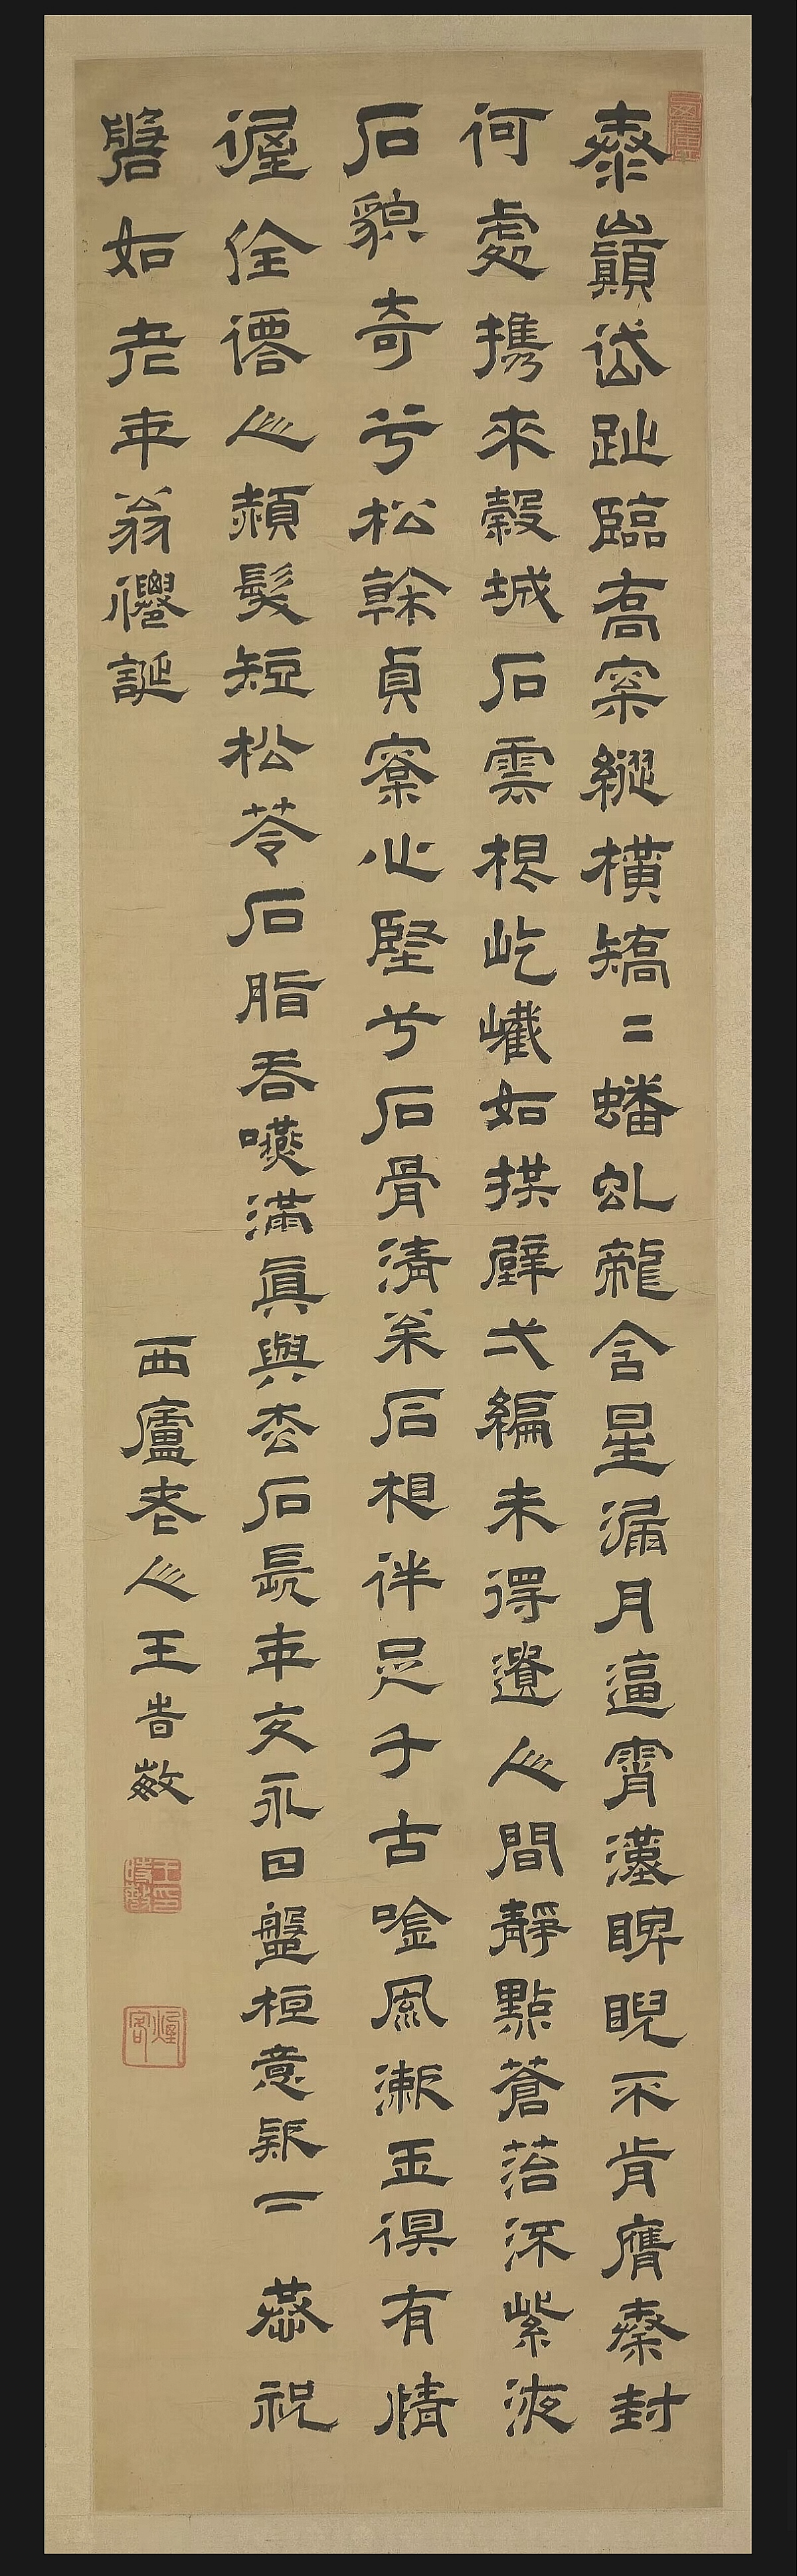 泰巔岱趾臨喬㮤縱橫矯二蟠虬龍含星漏月逼霄漢睥睨不肯膺秦封
何處攜來穀城石雲根屹巀如拱璧弌編未得遺人間靜點蒼苔深紫液
石貌奇兮松榦貞㮤心堅兮石骨清枩石相伴足千古唫風漱玉俱有情
偓佺僊人頳髮短松苓石脂吞嚥滿真與枩石長年交永日盤桓意款二 恭祝
磐如老年翁誕
西廬老人王時敏
王時敏印
煙客